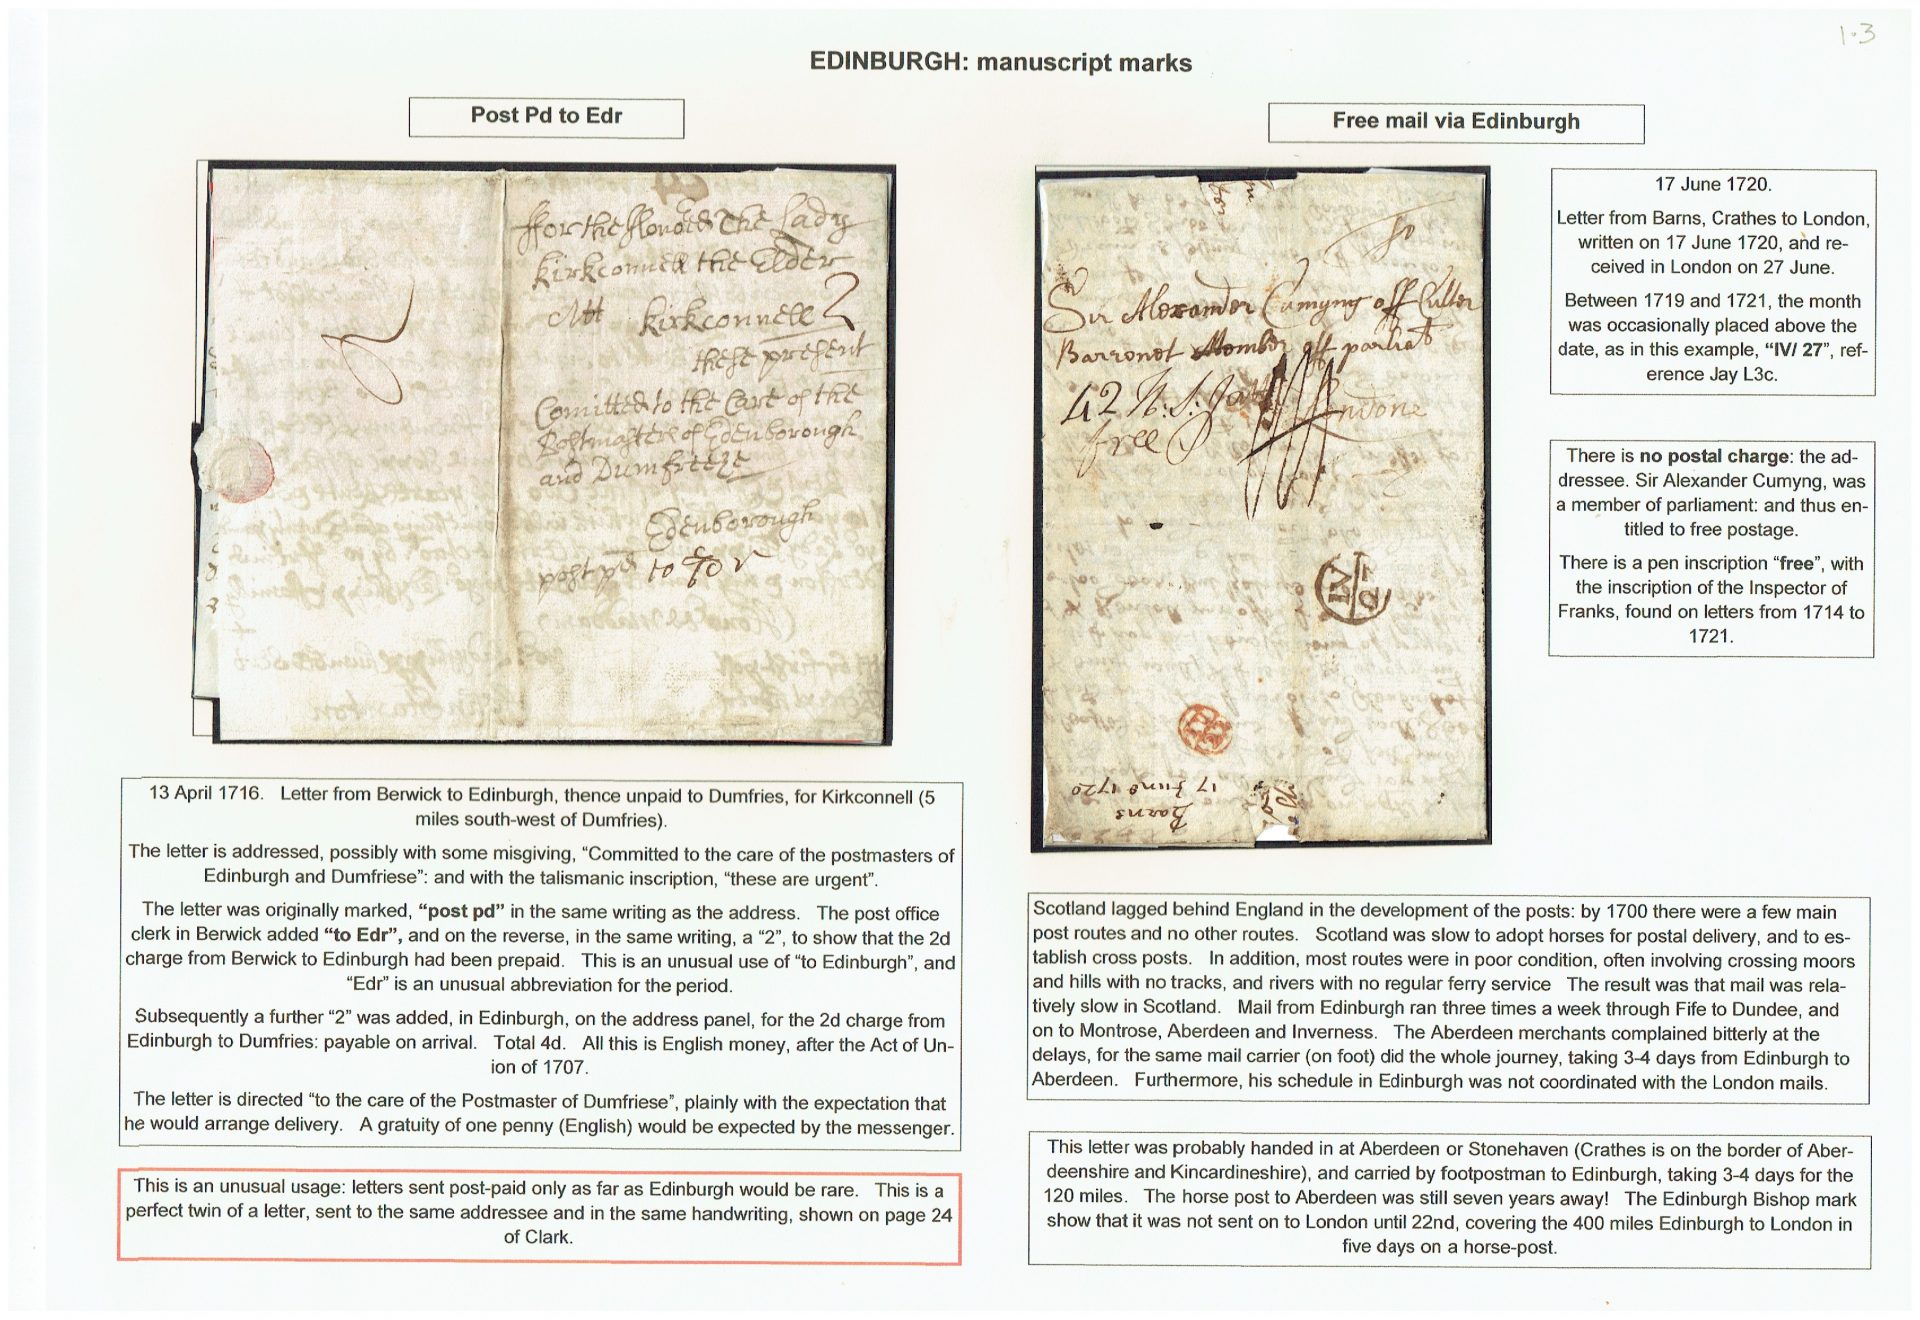 1.3
EDINBURGH: manuscript marks
Post Pd to Edr
ffor the Honoed The Lady
Kirkconnell the Elder
Att Kirkconnell 2
these present
Comitted to the Care of the
Postmasters of Edenborough
and Dumfreeze
Edenborough
post pd to Edr
2
13 April 1716. Letter from Berwick to Edinburgh, thence unpaid to Dumfries, for Kirkconnell (5
miles south-west of Dumfries).
The letter is addressed, possibly with some misgiving, “Committed to the care of the postmasters of
Edinburgh and Dumfriese”: and with the talismanic inscription, “these are urgent”.
The letter was originally marked, “post pd” in the same writing as the address. The post office
clerk in Berwick added “to Edr”, and on the reverse, in the same writing, a “2”, to show that the 2d
charge from Berwick to Edinburgh had been prepaid. This is an unusual use of “to Edinburgh”, and
“Edr” is an unusual abbreviation for the period.
Subsequently a further “2” was added, in Edinburgh, on the address panel, for the 2d charge from
Edinburgh to Dumfries: payable on arrival. Total 4d. All this is English money, after the Act of Un-
ion of 1707.
The letter is directed “to the care of the Postmaster of Dumfriese”, plainly with the expectation that
he would arrange delivery. A gratuity of one penny (English) would be expected by the messenger.
This is an unusual usage: letters sent post-paid only as far as Edinburgh would be rare. This is a
perfect twin of a letter, sent to the same addressee and in the same handwriting, shown on page 24
of Clark.
Free mail via Edinburgh
To
Sir Alexander Cumyng off Culter
Barronet Member off parliat
42
free
IV
27
Barns
17 June 1720
17 June 1720.
Letter from Barns, Crathes to London,
written on 17 June 1720, and re-
ceived in London on 27 June.
Between 1719 and 1721, the month
was occasionally placed above the
date, as in this example, “IV/ 27”, ref-
erence Jay L3c.
There is no postal charge: the ad-
dressee. Sir Alexander Cumyng, was
a member of parliament: and thus en-
titled to free postage.
There is a pen inscription “free”, with
the inscription of the Inspector of
Franks, found on letters from 1714 to
1721.
Scotland lagged behind England in the development of the posts: by 1700 there were a few main
post routes and no other routes. Scotland was slow to adopt horses for postal delivery, and to es-
tablish cross posts. In addition, most routes were in poor condition, often involving crossing moors
and hills with no tracks, and rivers with no regular ferry service The result was that mail was rela-
tively slow in Scotland. Mail from Edinburgh ran three times a week through Fife to Dundee, and
on to Montrose, Aberdeen and Inverness. The Aberdeen merchants complained bitterly at the
delays, for the same mail carrier (on foot) did the whole journey, taking 3-4 days from Edinburgh to
Aberdeen. Furthermore, his schedule in Edinburgh was not coordinated with the London mails.
This letter was probably handed in at Aberdeen or Stonehaven (Crathes is on the border of Aber-
deenshire and Kincardineshire), and carried by footpostman to Edinburgh, taking 3-4 days for the
120 miles. The horse post to Aberdeen was still seven years away! The Edinburgh Bishop mark
show that it was not sent on to London until 22nd, covering the 400 miles Edinburgh to London in
five days on a horse-post.